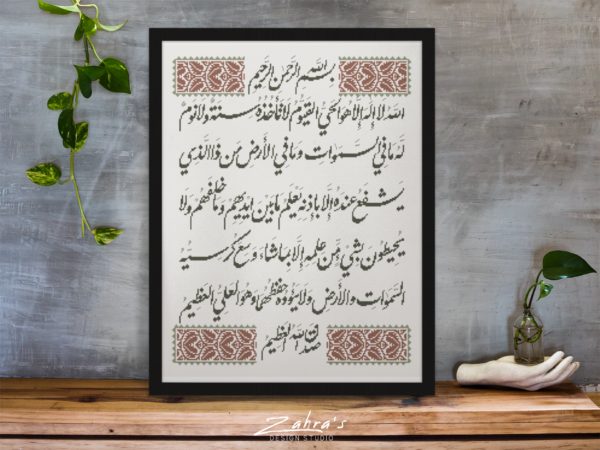 بِسْمِ اللهِ الرَّحْمٰنِ الرَّحِيْمِ
اللهُ لَا إِلَهَ إِلَّا هُوَ الْحَيُّ الْقَيُّومُ لَا تَأْخُذُهُ سِنَةٌ وَلَا نَوْمٌ
لَهُ مَا فِي السَّمَوَاتِ وَمَا فِي الْأَرْضِ مَن ذَا الَّذِي
يَشْفَعُ عِنْدَهُ إِلَّا بِإِذْنِهِ يَعْلَمُ مَا بَيْنَ أَيْدِيهِمْ وَمَا خَلْفَهُمْ وَلَا
يُحِيطُونَ بِشَيْءٍ مِّنْ عِلْمِهِ إِلَّا بِمَا شَاءَ وَسِعَ كُرْسِيُّهُ
السَّمَوَاتِ وَالْأَرْضَ وَلَا يَئُودُهُ حِفْظُهُمَا وَهُوَ الْعَلِيُّ الْعَظِيمُ
صَدَقَ اللهُ الْعَظِيمُ
Zahra's
DESIGN STUDIO